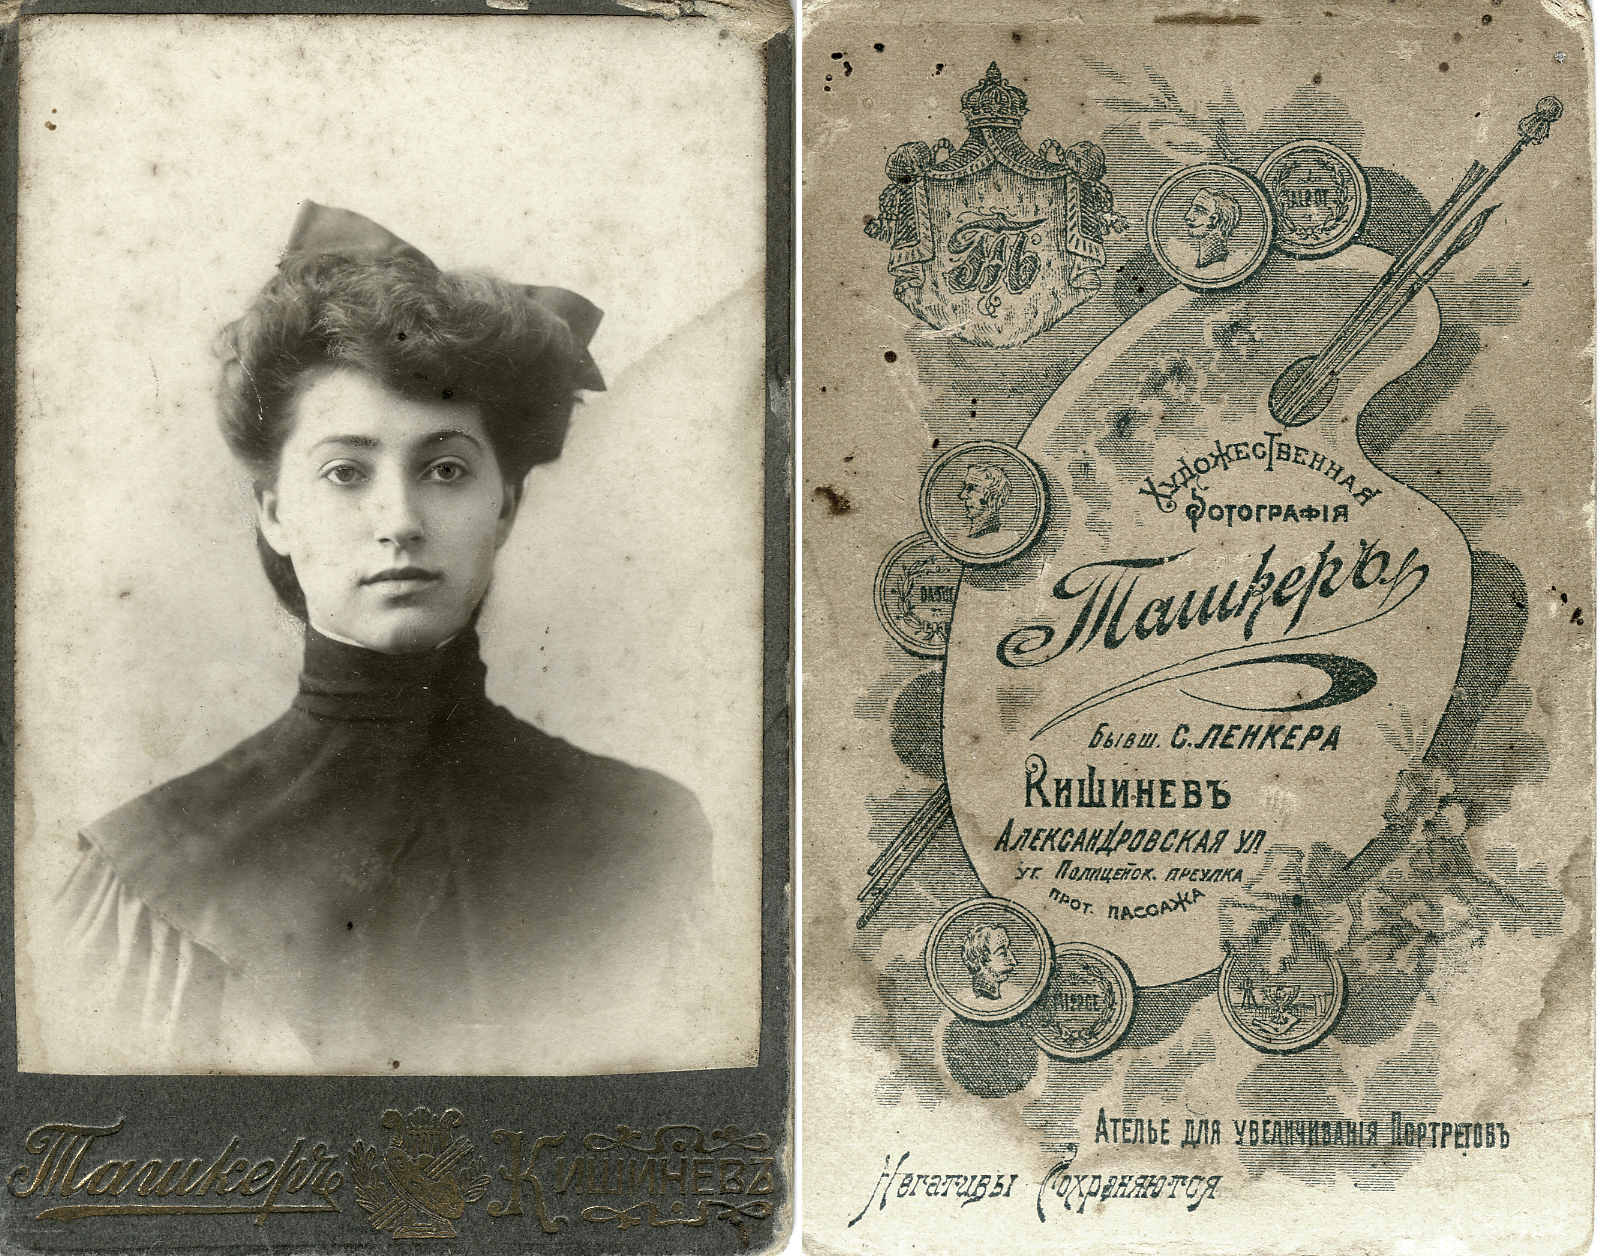 Ташкеръ Кишиневъ
ТМ
Художественная
Фотографія
Ташкеръ
Бывш. С. Ленкера
Кишиневъ
Александровская ул
уг. Полицейск. преулка
прот. Пассажа
Ателье для увеличиванія Портретовъ
Негативы Сохраняются